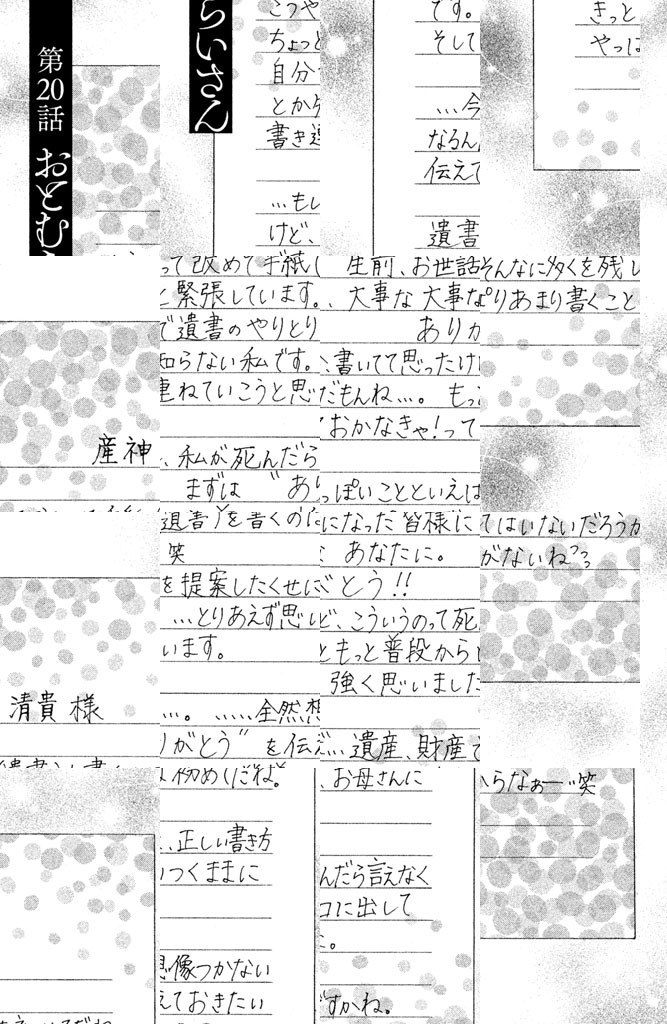 第20話 おとむ
らいさん
こつや
ちょっと
自分
とか
書き連
…もし
けど、
です。
そして
…今
なるん
伝えて
遺書
きっと
やっぱ
産神
って改めて手紙
と緊張しています。
で遺書のやりとり
知らない私です。
重ねていこうと思
、私が死んだら
まずは “あり
生前、お世話
、大事な大事な
ありか
、書いてて思ったけ
だもんね…。もっ
おかなきゃ!って
っぽいことといえば
そんなに多くを残し
りあまり書くこと
清貴様
遺書)を書くの
笑
を提案したくせに
…とりあえず思い
います。
…。……全然想
りがとう” を伝え
になった皆様に
あなたに。
とう!!
ど、こういうのって死
ともっと普段から
強く思いました
…遺産、財産で
てはいないだろうか
がないね
初めしだね。
、正しい書き方
いつくままに
想像つかない
えておきたい
、お母さんに
んだら言えなく
口に出して
た。
ですかね。
からなぁー…笑